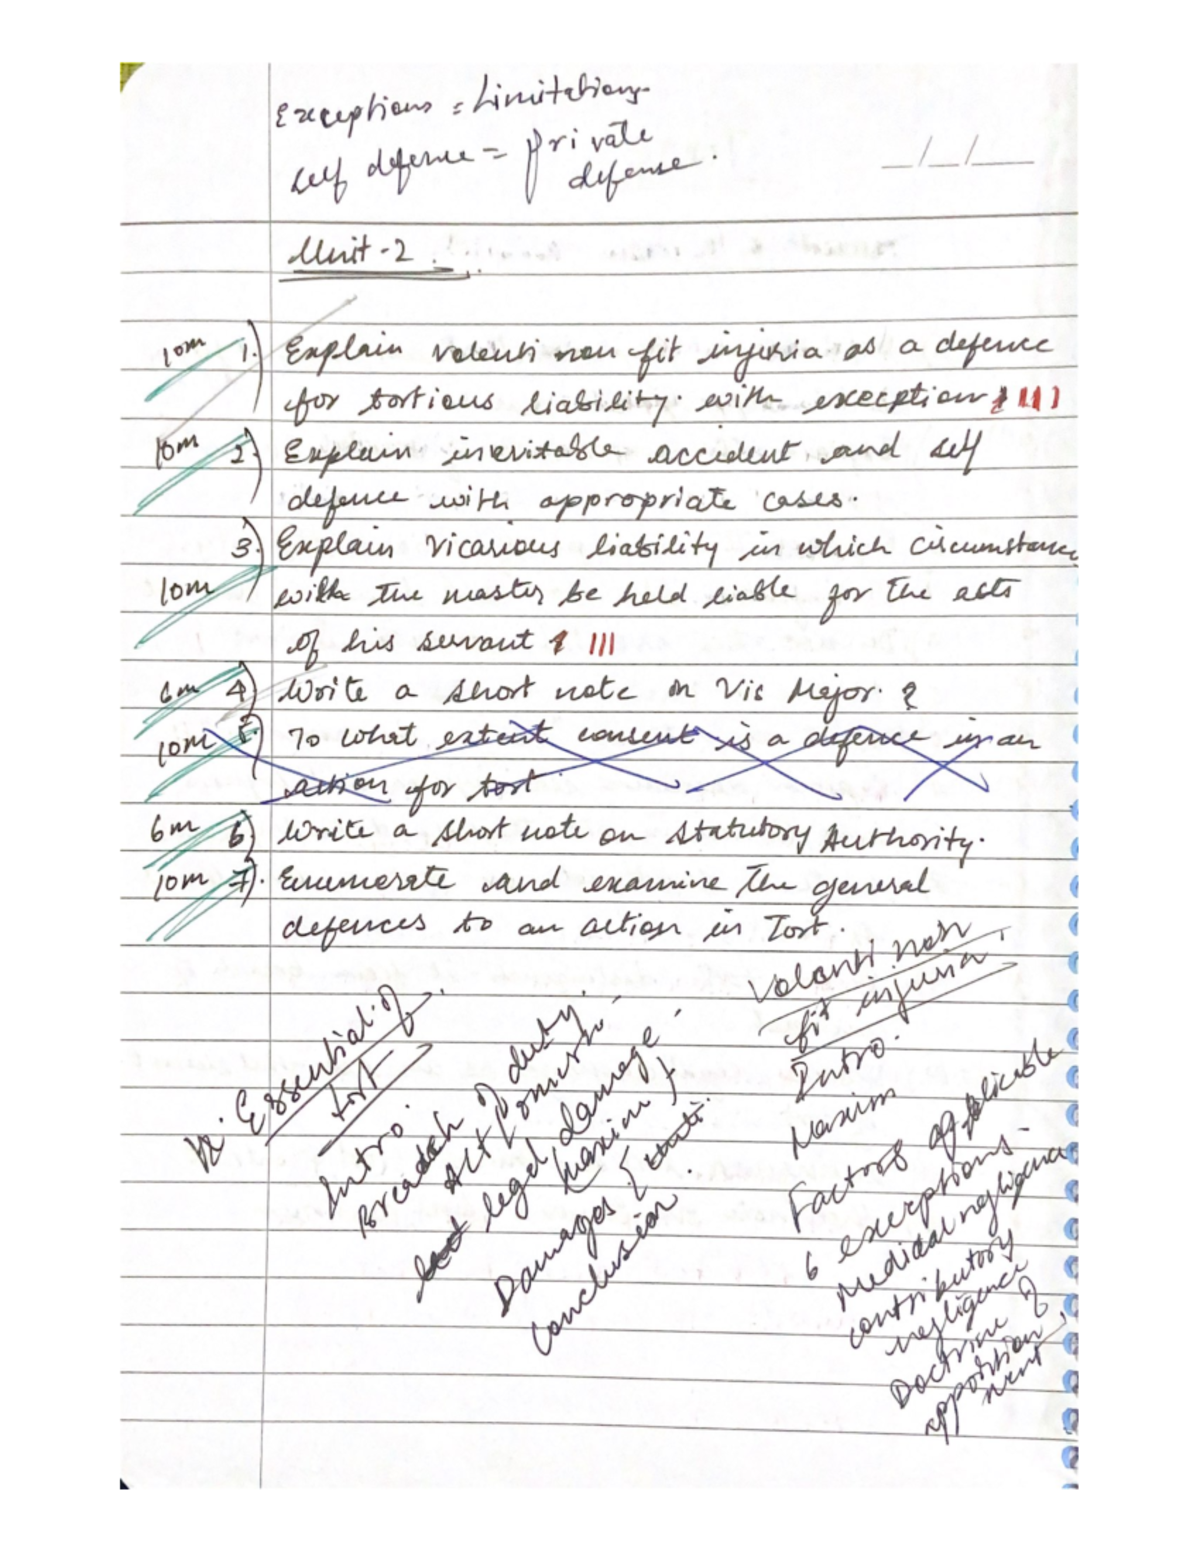 Exceptions = Limitations
Self defense = Private
defense.
__/__/____
Unit-2.
10m 1.) Explain volenti non fit injuria as a defence
for tortious liability. with exception
10m 2) Explain inevitable accident and self
defence with appropriate cases.
3.) Explain Vicarious liability in which circumstance
10m will the master be held liable for the acts
of his servant
6m 4) Write a short note on Vis Major. ?
10m 5) To what extent consent is a defence in an
action for tort
6m 6) Write a short note on Statutory Authority.
10m 7). Enumerate and examine the general
defences to an action in Tort.
Essential of
tort
Intro.
Breach of duty.
Act / omission
legal damage
(maxim)
Damages
Conclusion.
Volenti non
fit injuria.
Intro.
Maxim
Factors applicable
6 exceptions
Medical negligence
contributory
negligence
Doctrine of